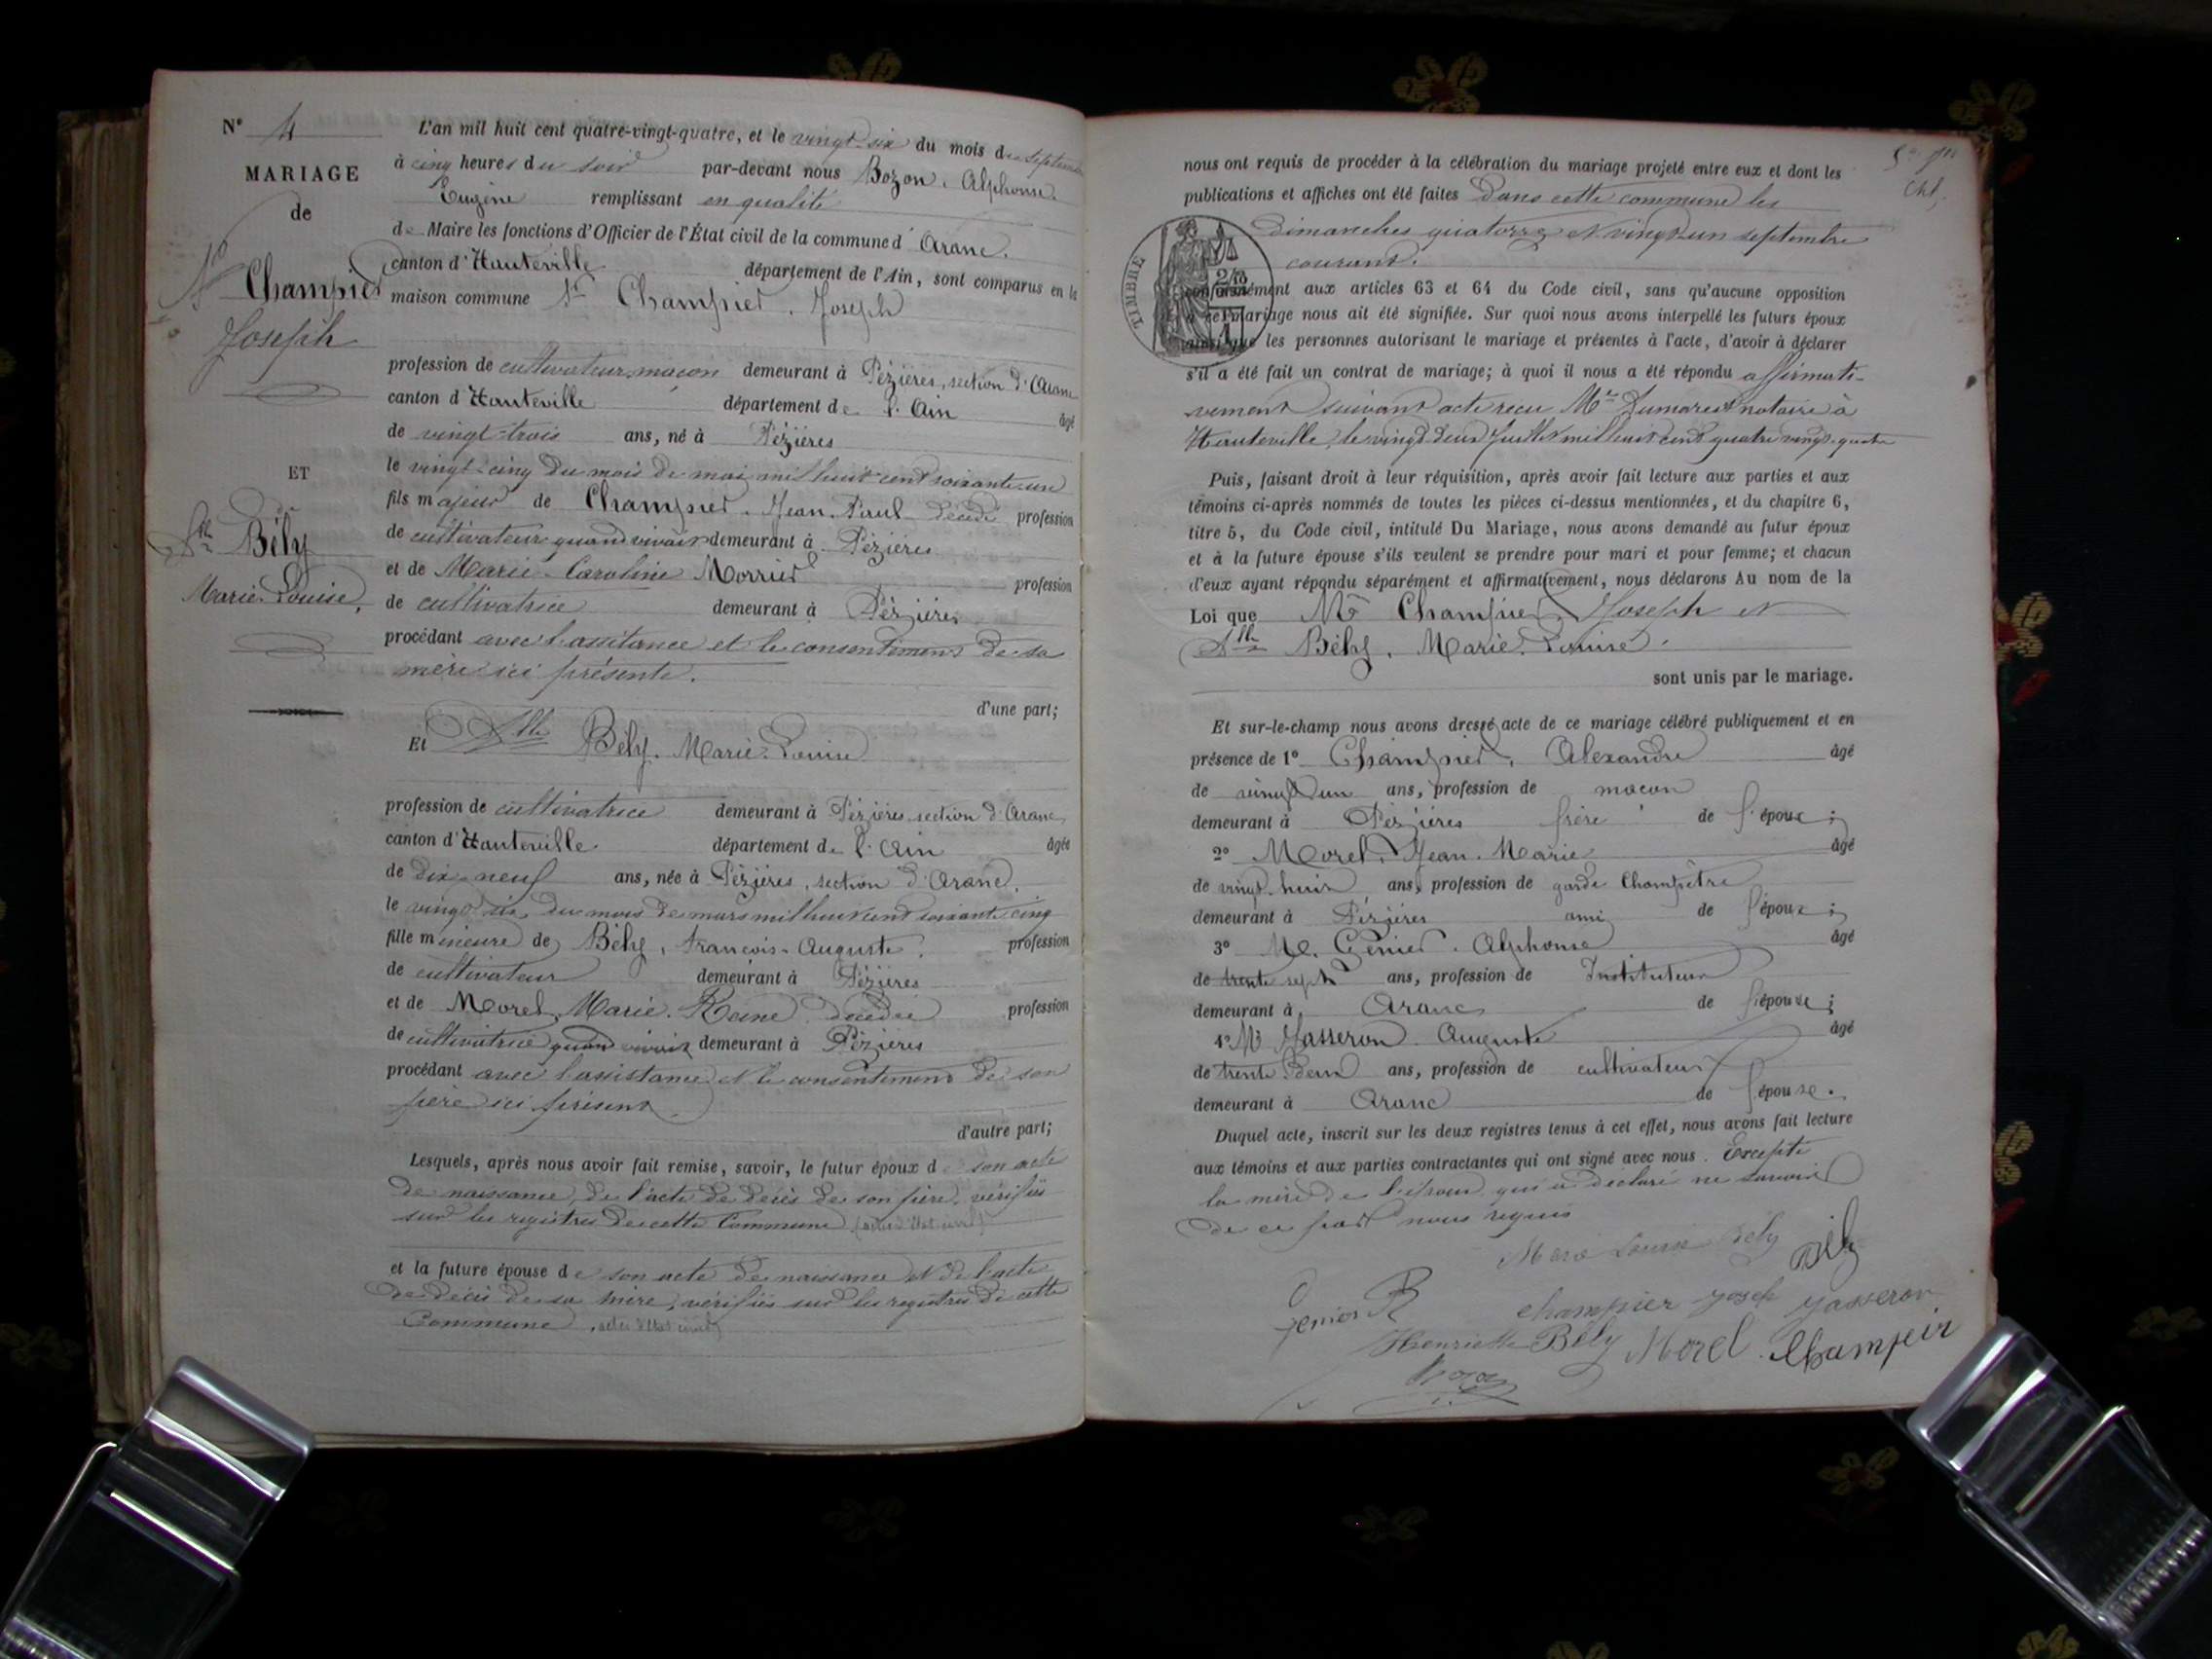 N° 4
MARIAGE
de
Champier
Joseph
ET
Dlle Bély
Marie-Louise,
L'an mil huit cent quatre-vingt-quatre, et le vingt-six du mois de septembre
à cinq heures du soir par-devant nous Bozon, Alphonse
Eugène remplissant en qualité
de Maire les fonctions d'Officier de l'État civil de la commune d'Aranc.
canton d'Hauteville département de l'Ain, sont comparus en la
maison commune Sr Champier, Joseph
profession de cultivateur, maçon demeurant à Pézières, section d'Aranc
canton d'Hauteville département de l'Ain âgé
de vingt-trois ans, né à Pézières
le vingt-cinq du mois de mai mil huit cent soixante-un
fils majeur de Champier, Jean-Paul décédé profession
de cultivateur quand vivait demeurant à Pézières
et de Marie-Caroline Morrier profession
de cultivatrice demeurant à Pézières
procédant avec l'assitance et le consentement de sa
mère ici présente.
d'une part;
Et Dlle Bély, Marie-Louise
profession de cultivatrice demeurant à Pézières, section d'Aranc
canton d'Hauteville département de l'Ain âgée
de dix-neuf ans, née à Pézières, section d'Aranc,
le vingt-six du mois de mars mil huit cent soixante-cinq
fille mineure de Bély, François-Auguste, profession
de cultivateur demeurant à Pézières
et de Morel, Marie-Reine décédée profession
de cultivatrice quand vivait demeurant à Pézières
procédant avec l'assistance et le consentement de son
père ici présent.
d'autre part;
Lesquels, après nous avoir fait remise, savoir, le futur époux de son acte
de naissance, de l'acte de décès de son père, vérifiés
sur les registres de cette Commune (actes d'état civil)
et la future épouse de son acte de naissance et de l'acte
de décès de sa mère, vérifiés sur les registres de cette
Commune, actes d'état civil
nous ont requis de procéder à la célébration du mariage projeté entre eux et dont les
publications et affiches ont été faites Dans cette commune les
dimanches quatorze et vingt-un septembre
courant.
TIMBRE
conformément aux articles 63 et 64 du Code civil, sans qu'aucune opposition
à ce mariage nous ait été signifiée. Sur quoi nous avons interpellé les futurs époux
ainsi que les personnes autorisant le mariage et présentes à l'acte, d'avoir à déclarer
s'il a été fait un contrat de mariage; à quoi il nous a été répondu affirmati-
vement suivant acte recu Me Dumarest notaire à
Hauteville, le vingt-deux Juillet mil huit cent quatre vingt-quatre
Puis, faisant droit à leur réquisition, après avoir fait lecture aux parties et aux
témoins ci-après nommés de toutes les pièces ci-dessus mentionnées, et du chapitre 6,
titre 5, du Code civil, intitulé Du Mariage, nous avons demandé au futur époux
et à la future épouse s'ils veulent se prendre pour mari et pour femme; et chacun
d'eux ayant répondu séparément et affirmativement, nous déclarons Au nom de la
Loi que Mr Champier, Joseph et
Dlle Bély, Marie-Louise.
sont unis par le mariage.
Et sur-le-champ nous avons dressé acte de ce mariage célébré publiquement et en
présence de 1° Champier, Alexandre âgé
de vingt-un ans, profession de maçon
demeurant à Pézières frère de l'époux;
2° Morel, Jean-Marie âgé
de vingt-huit ans, profession de garde Champêtre
demeurant à Pézières ami de l'époux;
3° M. Génier, Alphonse âgé
de trente sept ans, profession de Instituteur
demeurant à Aranc de l'épouse;
4° Mr Jasseron Auguste âgé
de trente-deux ans, profession de cultivateur
demeurant à Aranc de l'épouse.
Duquel acte, inscrit sur les deux registres tenus à cet effet, nous avons fait lecture
aux témoins et aux parties contractantes qui ont signé avec nous. Excepté
la mère de l'époux qui a déclaré ne savoir
de ce fait nous requis
Marie Louise Bély Bély
Génier
champier joseph Jasseron
Henriette Bély Morel Champeir
Bozon